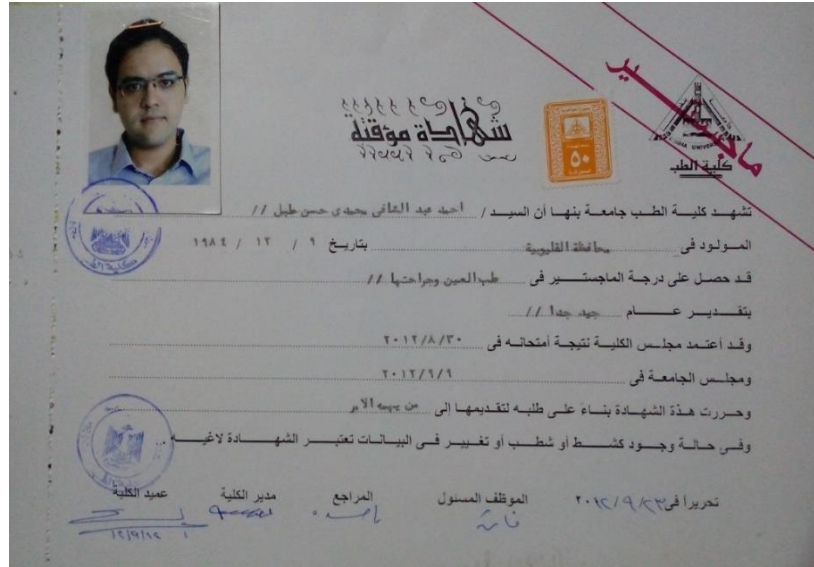 ماجستير
BENHA UNIVERSITY
كلية الطب
٥٠
شهادة مؤقتة
تشهد كلية الطب جامعة بنها أن السيد / احمد عبد الشافى محمدى حسن طبل //
المولود فى محافظة القليوبية بتاريخ ٩ / ١٢ / ١٩٨٤
قد حصل على درجة الماجستير فى طب العين وجراحتها //
بتقدير عام جيد جدا //
وقد أعتمد مجلس الكلية نتيجة أمتحانه فى ٢٠١٢/٨/٣٠
ومجلس الجامعة فى ٢٠١٢/٩/٩
وحررت هذة الشهادة بناءً على طلبه لتقديمها إلى من يهمه الامر
وفى حالة وجود كشط أو شطب أو تغيير فى البيانات تعتبر الشهادة لاغيه
تحريرا فى ٢٠١٢/٩/٢٣ الموظف المسئول المراجع مدير الكلية عميد الكلية